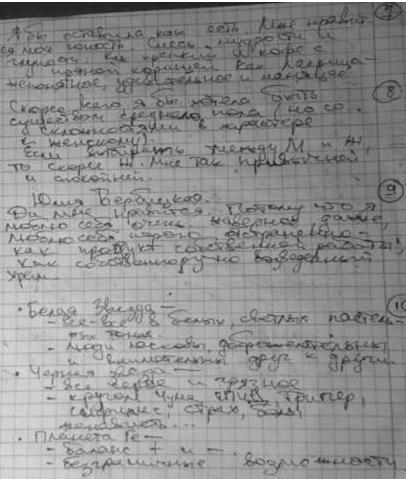 7
Я бы оставила как есть. Мне нравит-
ся моя юность. Смесь мудрости и
глупости. Как крепкий кофе с
пряной корицей. Как Лакрица-
непонятное, удивительное и манящее.
8
Скорее всего я бы хотела быть
существом среднего пола (но со
склонностями в характере
к женскому).
Если выбирать между М и Ж,
то скорее Ж. Мне так привычней
и спокойней.
9
Юлия Вербицкая.
Да мне нравится. Потому что я
люблю себя очень наверное даже,
люблю себя
как продукт собственной работы,
как собственноручно возведенный
храм.
10
• Белая Звезда —
- все-все в белых, светлых пастель-
ных тонах.
- люди ласковы, доброжелательны
и внимательны друг к другу.
• Черная звезда —
- все серое и грязное
- кругом Чума, СПИД, триппер,
сифилис, страх, боль,
ненависть...
• Планета Ге —
- баланс + и -.
- безграничные возможности